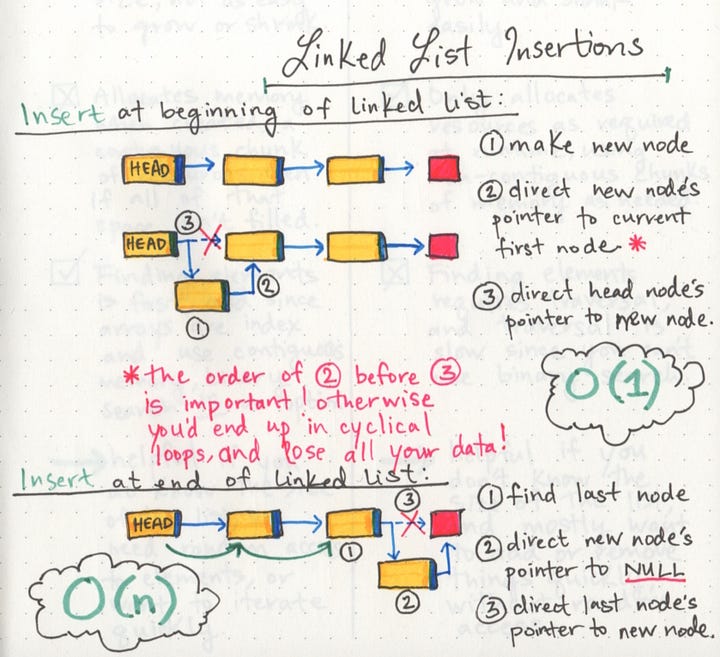 Linked List Insertions
Insert at beginning of linked list:
HEAD
① make new node
② direct new node's
pointer to current
first node *
③ direct head node's
pointer to new node.
HEAD
③
②
①
O(1)
* the order of ② before ③
is important! otherwise
you'd end up in cyclical
loops, and lose all your data!
Insert at end of linked list:
HEAD
③
①
②
O(n)
① find last node
② direct new node's
pointer to NULL
③ direct last node's
pointer to new node.